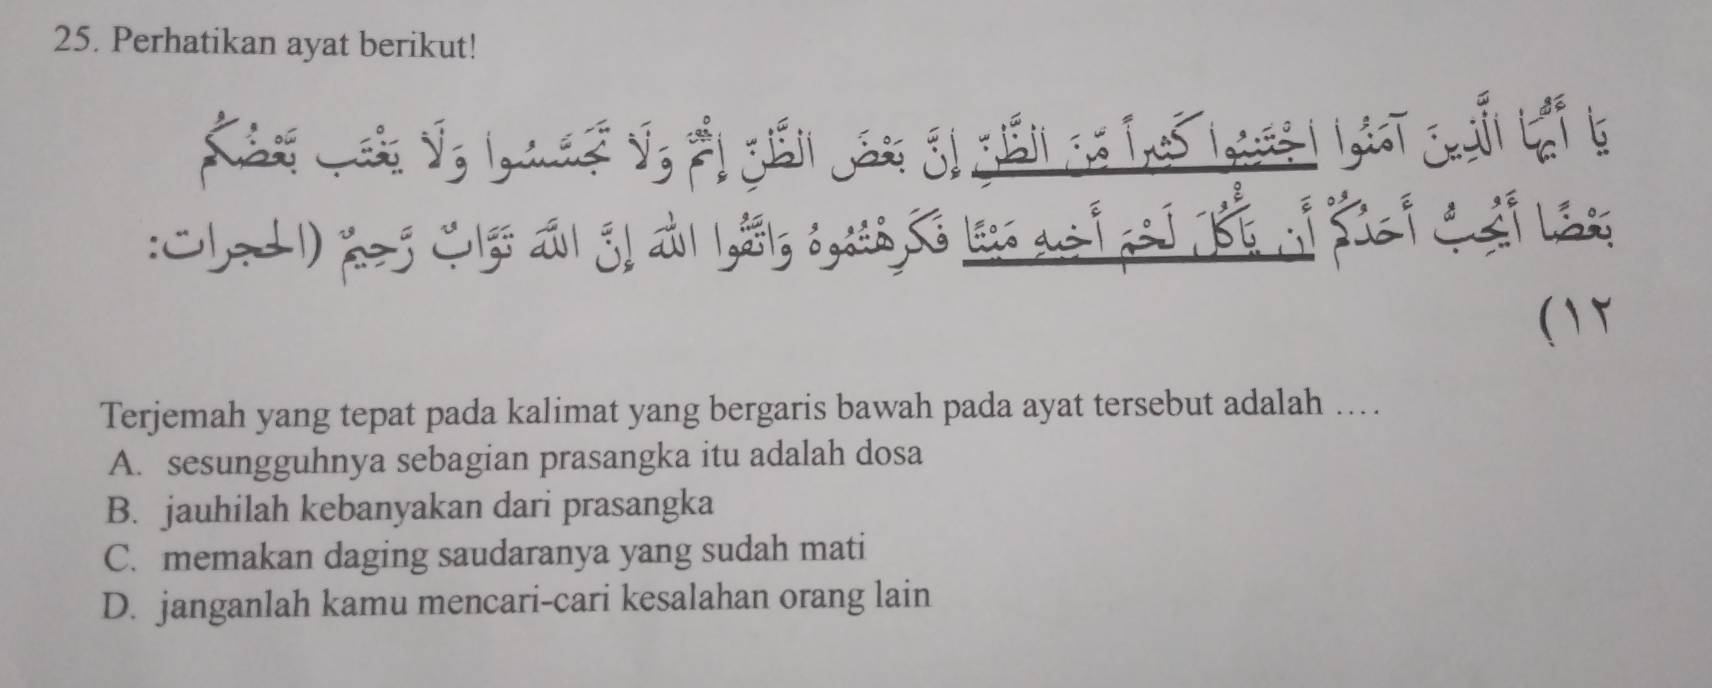 25. Perhatikan ayat berikut!
يَا أَيُّهَا الَّذِينَ آمَنُوا اجْتَنِبُوا كَثِيراً مِّنَ الظَّنِّ إِنَّ بَعْضَ الظَّنِّ إِثْمٌ وَلَا تَجَسَّسُوا وَلَا يَغْتَب بَّعْضُكُم
بَعْضًا أَيُحِبُّ أَحَدُكُمْ أَن يَأْكُلَ لَحْمَ أَخِيهِ مَيْتًا فَكَرِهْتُمُوهُ وَاتَّقُوا اللَّهَ إِنَّ اللَّهَ تَوَّابٌ رَّحِيمٌ (الحجرات:
١٢)
Terjemah yang tepat pada kalimat yang bergaris bawah pada ayat tersebut adalah ….
A. sesungguhnya sebagian prasangka itu adalah dosa
B. jauhilah kebanyakan dari prasangka
C. memakan daging saudaranya yang sudah mati
D. janganlah kamu mencari-cari kesalahan orang lain